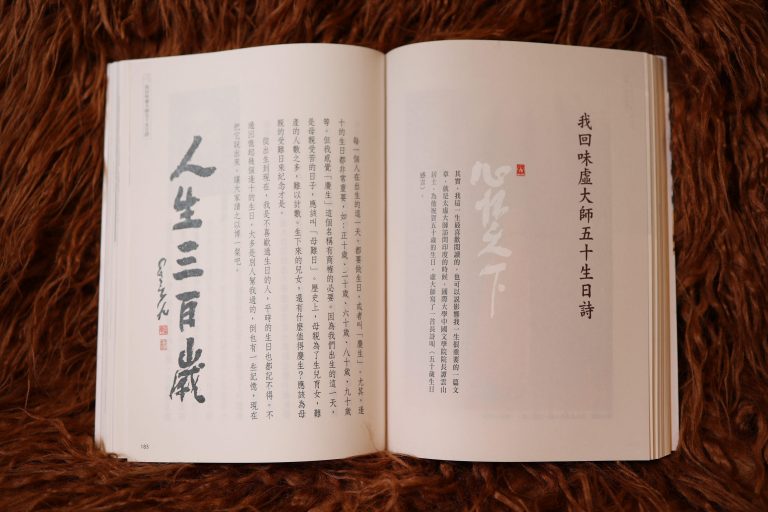 我回味虛大師五十生日詩
心懷天下
其實，我這一生最喜歡閱讀的，也可以說影響我一生很重要的一篇文
章，就是太虛大師訪問印度的時候，國際大學中國文學院院長譚雲山
居士，為他祝賀五十歲的生日，虛大師寫了一首長詩叫〈五十歲生日
感言〉。
每一個人在出生的這一天，都要做生日，或者叫「慶生」。尤其，逢
十的生日都非常重要，如：正十歲、二十歲、六十歲、八十歲、九十歲
等。但我感覺「慶生」這個名稱有商榷的必要。因為我們出生的這一天，
是母親受苦的日子，應該叫「母難日」。歷史上，母親為了生兒育女，難
產的人數之多，難以計數。生下來的兒女，還有什麼值得慶生？應該為母
親的受難日來紀念才是。
從出生到現在，我是不喜歡過生日的人，平時的生日也都記不得。不
過回憶起幾個逢十的生日，大多是別人幫我過的，倒也有一些記憶，現在
把它說出來，讓大家讀之以博一粲吧。
人生三百歲
183